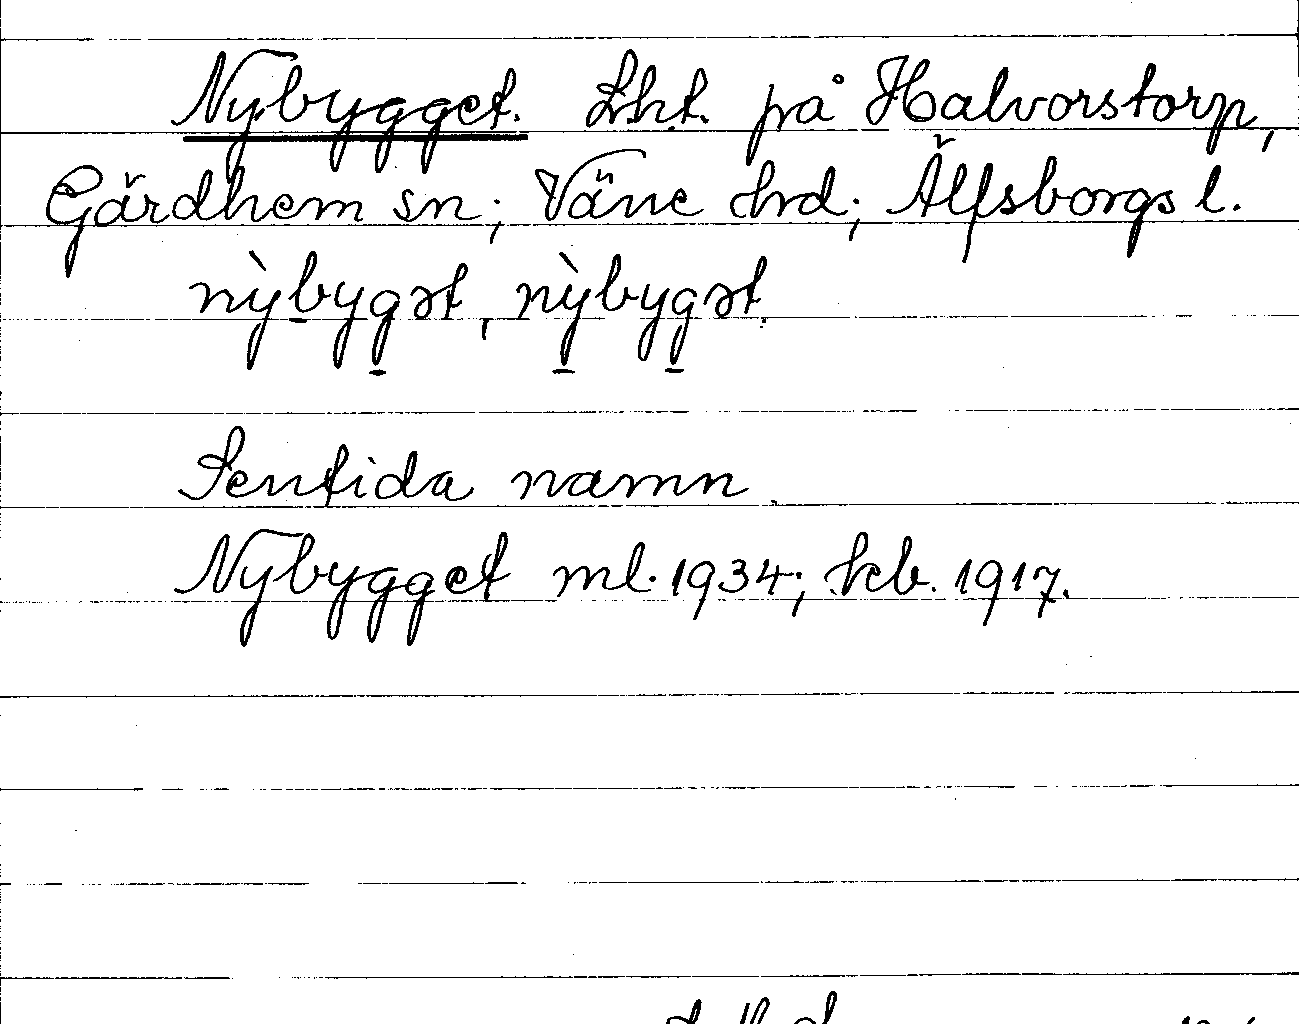 Nybygget. Lht. på Halvorstorp,
Gärdhem sn; Väne hrd; Älfsborgs l.
nỳbygət, nỳbygət.
Sentida namn.
Nybygget ml. 1934; kb. 1917.